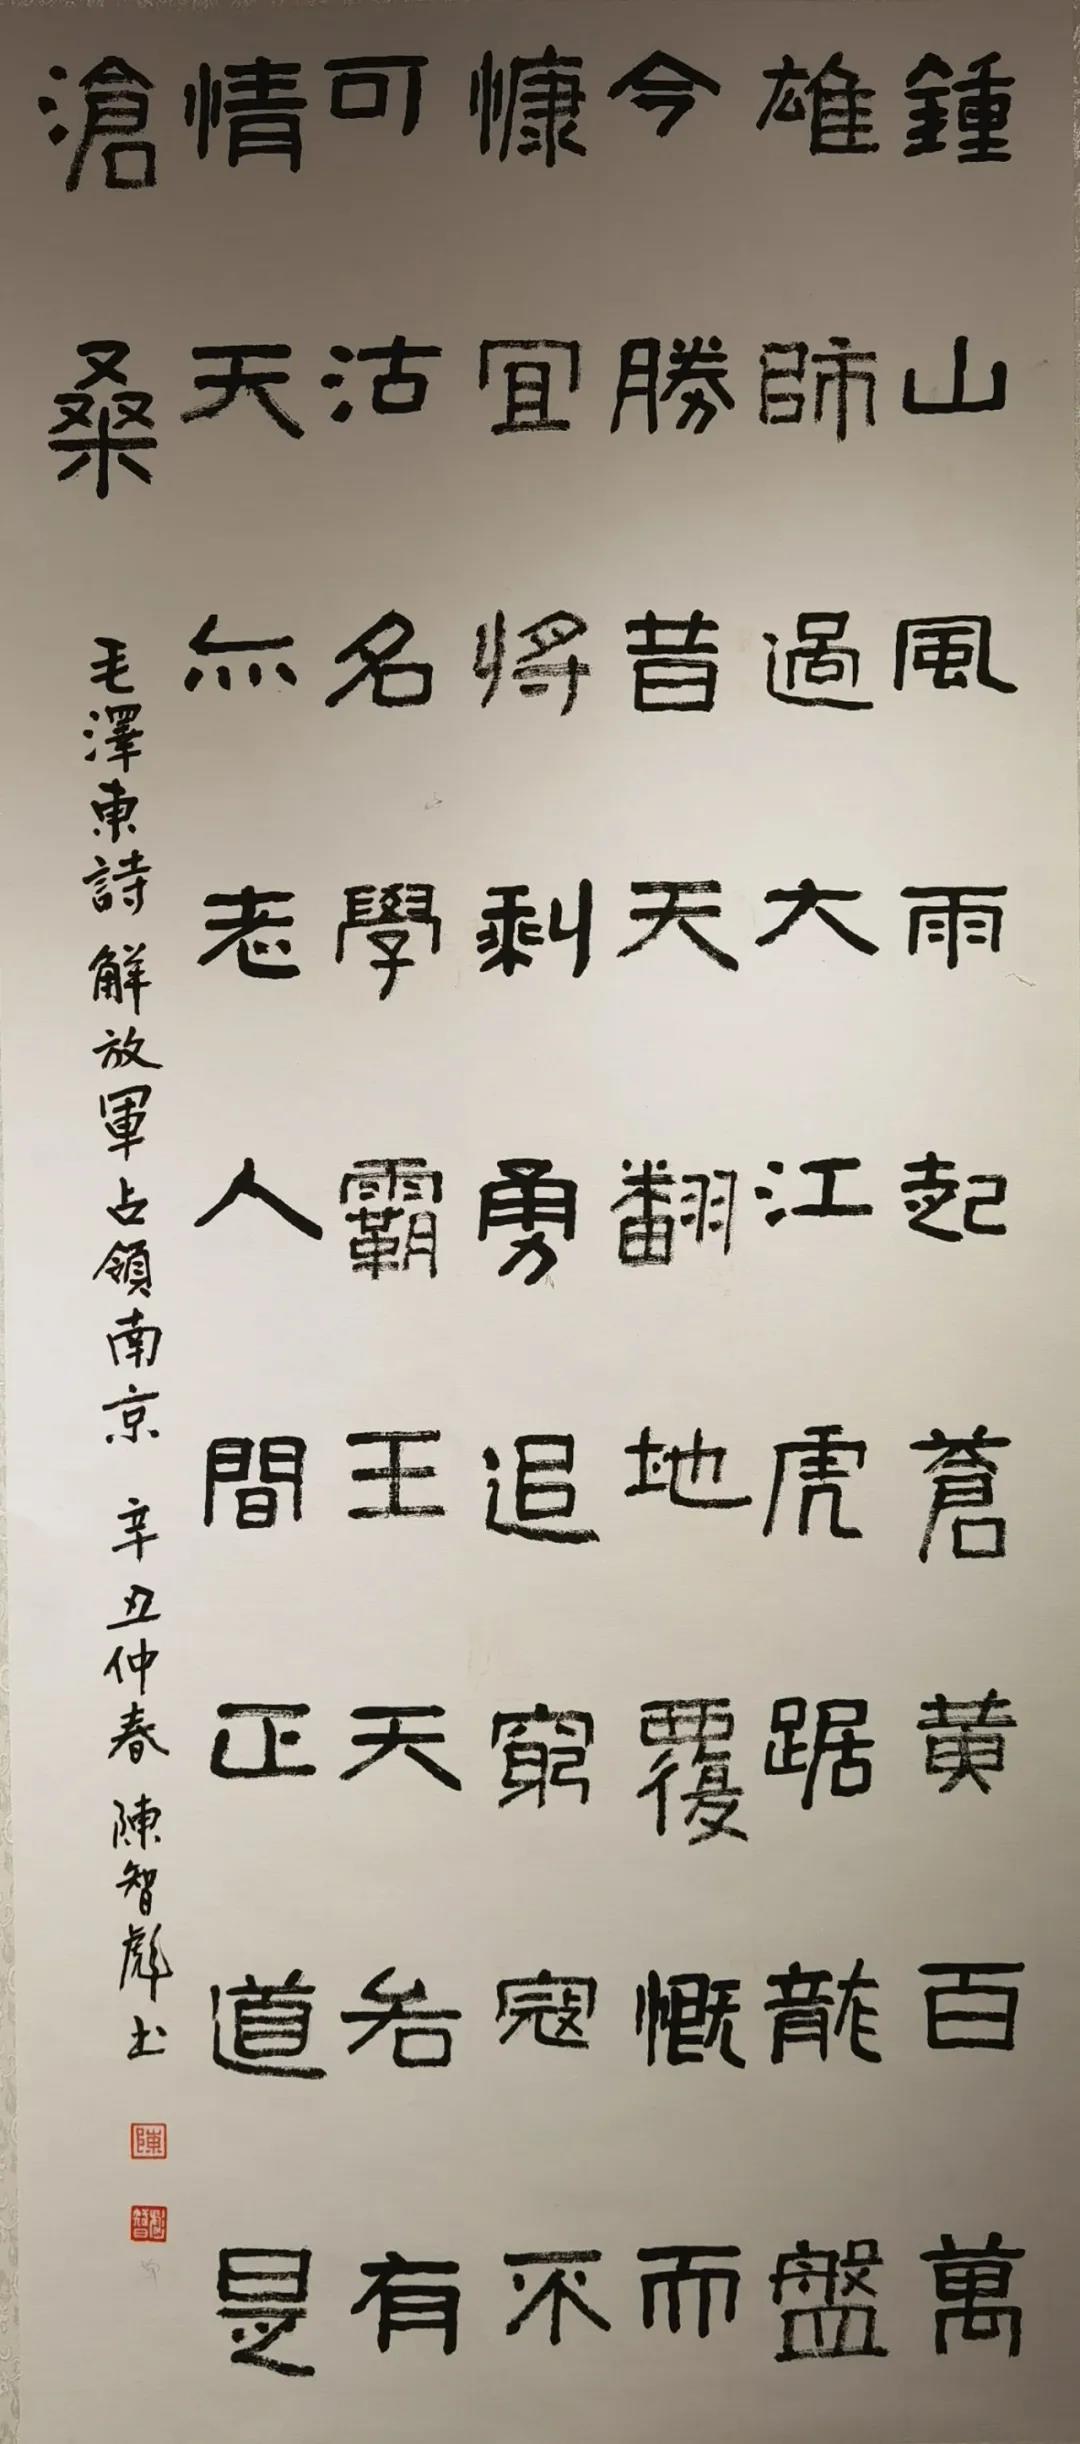 鍾山風雨起蒼黄百萬
雄師過大江虎踞龍盤
今勝昔天翻地覆慨而
慷宜將剩勇追窮寇不
可沽名學霸王天若有
情天亦老人間正道是
滄桑
毛澤東詩 解放軍占領南京 辛丑仲春 陳智彪书
陳
智彪